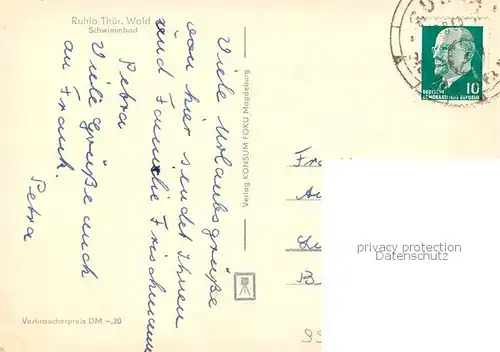 Ruhla Thür. Wald
Schwimmbad
Viele Urlaubsgrüße
von hier sendet Ihnen
und Familie Frischmann
Petra
Viele Grüße auch
an Frank.
Petra
Verlag KONSUM FOKU Magdeburg
10
DEUTSCHE
DEMOKRATISCHE REPUBLIK
Fr
A
B
privacy protection
Datenschutz
Verbraucherpreis DM -,20